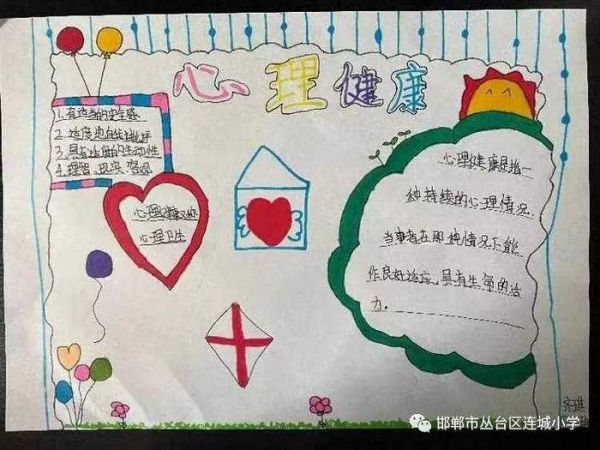 心理健康
1.有适当的安全感
2.适度地自我批评
3.具有适度的主动性
4.理智、现实、客观
心理健康又称
心理卫生
心理健康是指一
种持续的心理情况
当事者在那种情况下能
作良好适应,具有生命的活
力。
邯郸市丛台区连城小学